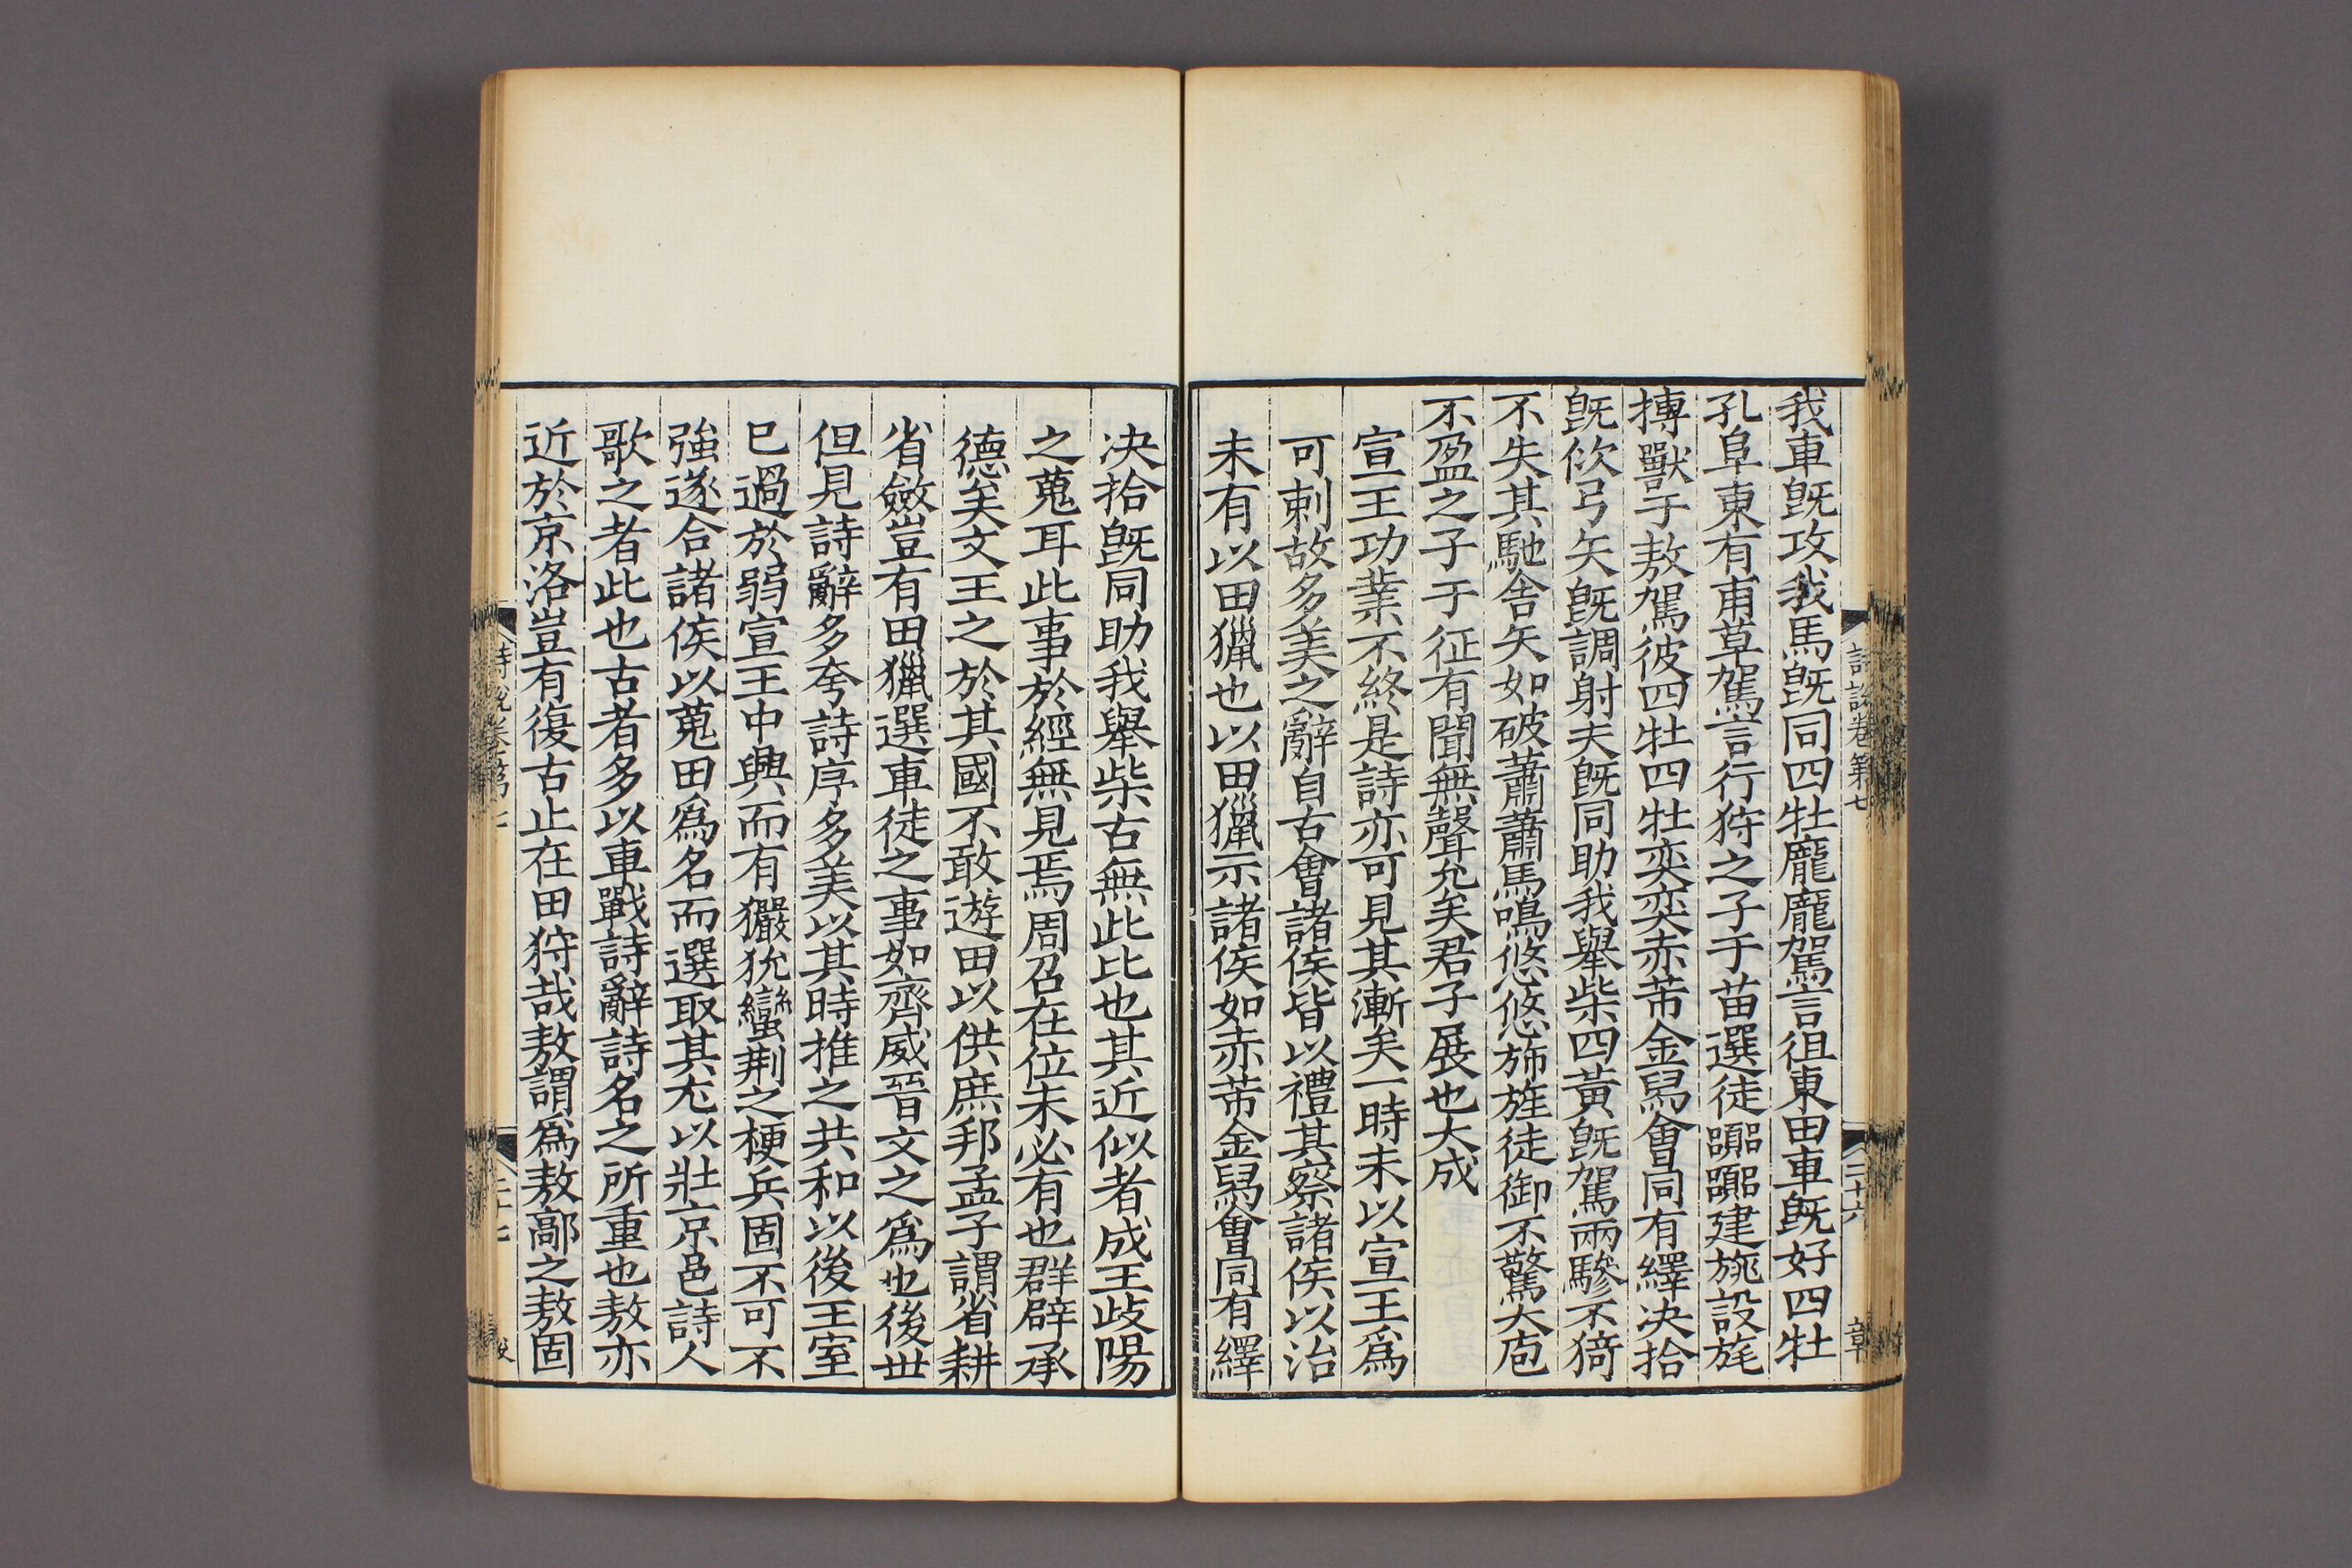 我車旣攻我馬旣同四牡龐龐駕言徂東田車旣好四牡
孔阜東有甫草駕言行狩之子于苗選徒嚻嚻建旐設旄
搏獸于敖駕彼四牡四牡奕奕赤芾金舄會同有繹决拾
旣佽弓矢旣調射夫旣同助我舉柴四黃旣駕兩驂不猗
不失其馳舍矢如破蕭蕭馬鳴悠悠斾旌徒御不驚大庖
不盈之子于征有聞無聲允矣君子展也大成
宣王功業不終是詩亦可見其漸矣一時未以宣王爲
可刺故多美之辭自古會諸侯皆以禮其察諸侯以治
未有以田獵也以田獵示諸侯如赤芾金舄會同有繹
决拾旣同助我舉柴古無此比也其近似者成王歧陽
之蒐耳此事於經無見焉周召在位未必有也群辟承
德矣文王之於其國不敢遊田以供庶邦孟子謂省耕
省斂豈有田獵選車徒之事如齊威晉文之爲也後世
但見詩辭多夸詩序多美以其時推之共和以後王室
巳過於弱宣王中興而有玁狁蠻荆之梗兵固不可不
強遂合諸侯以蒐田爲名而選取其尤以壯京邑詩人
歌之者此也古者多以車戰詩辭詩名之所重也敖亦
近於京洛豈有復古止在田狩哉敖謂爲敖鄗之敖固
詩說卷第七
二十六
章
詩說卷第七